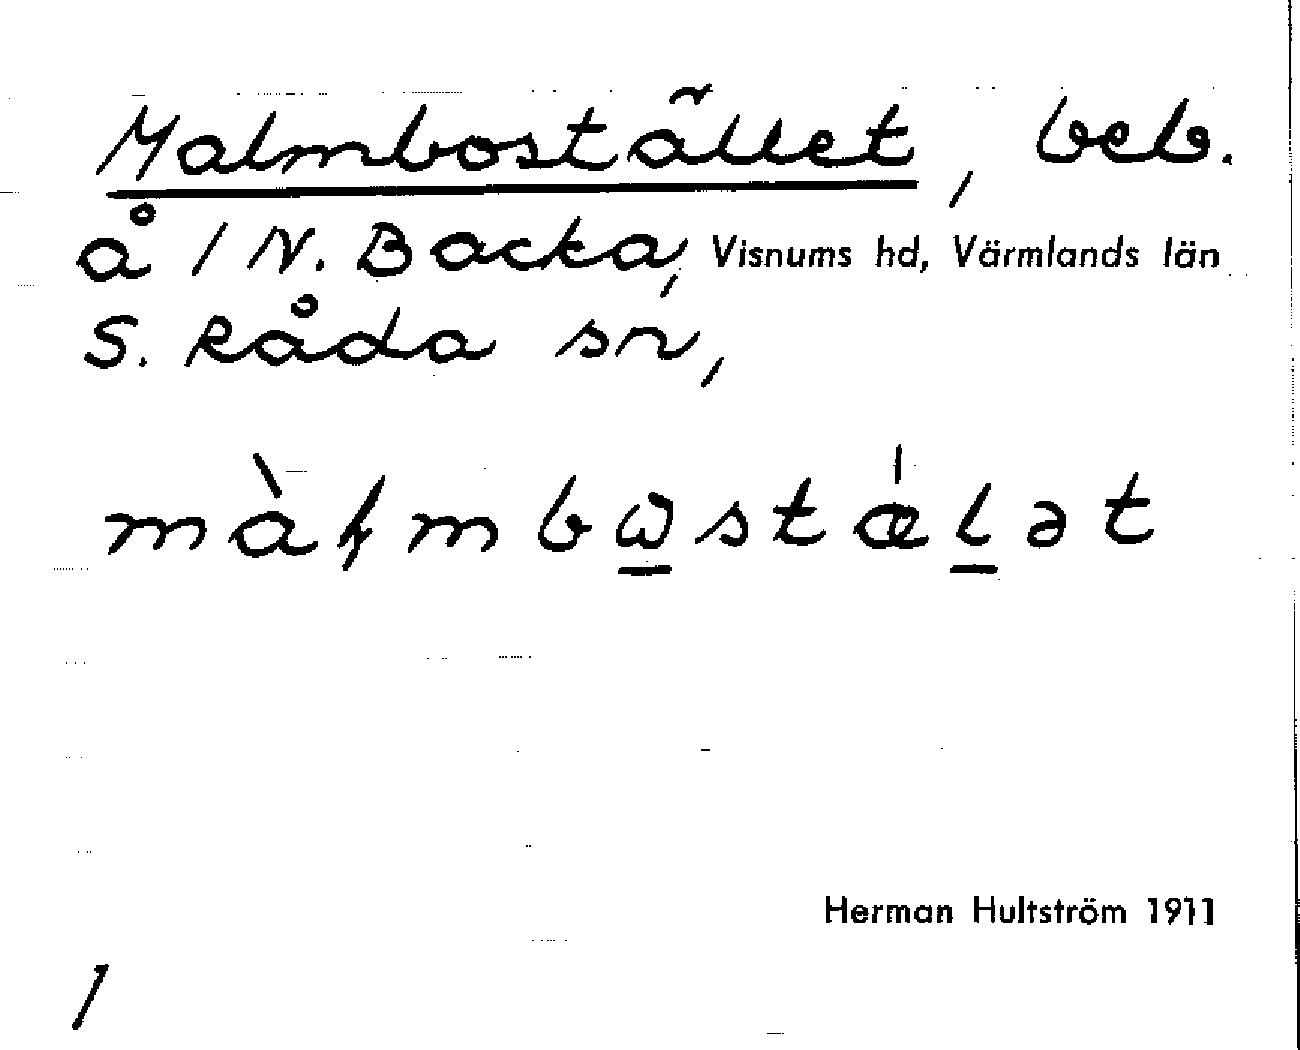 Malmbostället, beb.
å 1 N. Backa, Visnums hd, Värmlands län
S. Råda sn,
màɬmbω̲stæ̍l̲ət
Herman Hultström 1911
1